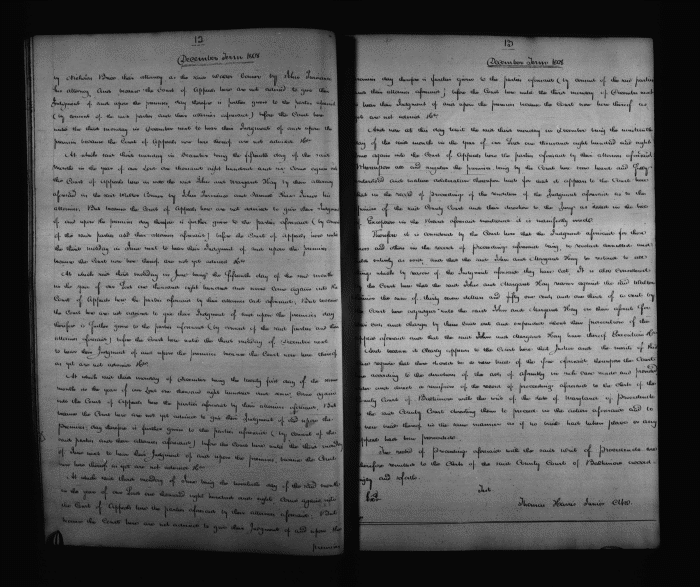 12
December Term 1808
by Nicholas Brice their attorney as the said William Connor by John
his attorney And because the Court of Appeals here are not advised to give their
Judgment of and upon the premises day therefor is further given to the parties aforesaid
(by consent of the said parties and their attornies aforesaid) before the Court here
until the third monday in December next to hear their Judgment of and upon the
premises because the Court now here thereof are not advised &c
At which said third monday in December being the fifteenth day of the said
month in the year of our Lord one thousand eight hundred and six Come again into
the Court of Appeals here as well the said John and Margaret Hay by their attorney
aforesaid as the said William Connor by John and his
attornies, But because the Court of Appeals here are not advised to give their Judgment
of and upon the premises day therefor is further given to the parties aforesaid (by consent
of the said parties and their attornies aforesaid) before the Court of Appeals here until
the third monday in June next to hear their Judgment of and upon the premises
because the Court now here thereof are not yet advised &c
At which said third monday in June being the fifteenth day of the said month
in the year of our Lord one thousand eight hundred and seven Come again into the
Court of Appeals here the parties aforesaid by their attornies aforesaid, But because
the Court here are not advised to give their Judgment of and upon the premises day
therefor is further given to the parties aforesaid (by consent of the said parties and their
attornies aforesaid) before the Court here until the third monday of December next
to hear their Judgment of and upon the premises because the Court now here thereof
as yet are not advised &c
At which said third monday of December being the twenty first day of the same
month in the year of our Lord one thousand eight hundred and seven Come again
into the Court of Appeals here the parties aforesaid by their attornies aforesaid, But
because the Court here are not yet advised to give their Judgment of and upon the
premises, day therefor is further given to the parties aforesaid (by consent of the
said parties and their attornies aforesaid) before the Court here until the third monday
of June next to hear their Judgment of and upon the premises, because the Court
now here thereof as yet are not advised &c
At which said third monday of June being the twentieth day of the said month
in the year of our Lord one thousand eight hundred and eight Come again into
the Court of Appeals here the parties aforesaid by their attornies aforesaid, But
because the Court here are not advised to give their Judgment of and upon the
premises
13
December Term 1808
premises day therefor is further given to the parties aforesaid (by consent of the said parties
and their attornies aforesaid) before the Court here until the third monday of December next
to hear their Judgment of and upon the premises because the Court now here thereof as
yet are not advised &c
And now at this day to wit the said third monday in December being the nineteenth
day of the said month in the year of our Lord one thousand eight hundred and eight
Come again into the Court of Appeals here the parties aforesaid by their attornies aforesaid
Whereupon all and singular the premises being by the Court here seen heard and fully
understood and mature deliberation thereupon had for that it appears to the Court here
that in the record of Proceedings of the rendition of the Judgment aforesaid as in the
opinion of the said County Court and their direction to the Jury as stated in the
Exceptions in the record aforesaid mentioned it is manifestly erred
Therefore it is considered by the Court here that the Judgment aforesaid for those
and others in the record of proceedings aforesaid being, be reversed annulled and
entirely as void, and that the said John and Margaret Hay be restored to all
things which by reason of the Judgment aforesaid they have lost. It is also considered
by the Court here that the said John and Margaret Hay recover against the said William
Connor the sum of thirty nine dollars and fifty one cents and one third of a cent by
the Court here adjudged unto the said John and Margaret Hay on their assent for
their costs and charges by them laid out and expended about their prosecution of the
appeal aforesaid and that the said John and Margaret Hay have thereof Execution &c
And because it clearly appears to the Court here that Justice and the merits of the
case require that there should be a new trial of the issue aforesaid thereupon the Court
here according to the direction of the acts of assembly in such case made and provided
order and direct a remission of the record of proceedings aforesaid to the Clerk of the
County Court of Baltimore with the writ of the State of Maryland of Procedendo
to the said County Court directing them to proceed in the action aforesaid and to
a new trial thereof in the same manner as if no trial had taken place or any
appeal had been prosecuted.
The record of proceedings aforesaid with the said writ of Procedendo are
therefore remitted to the Clerk of the said County Court of Baltimore
and so forth.
Test
Thomas Harris Junior Clk